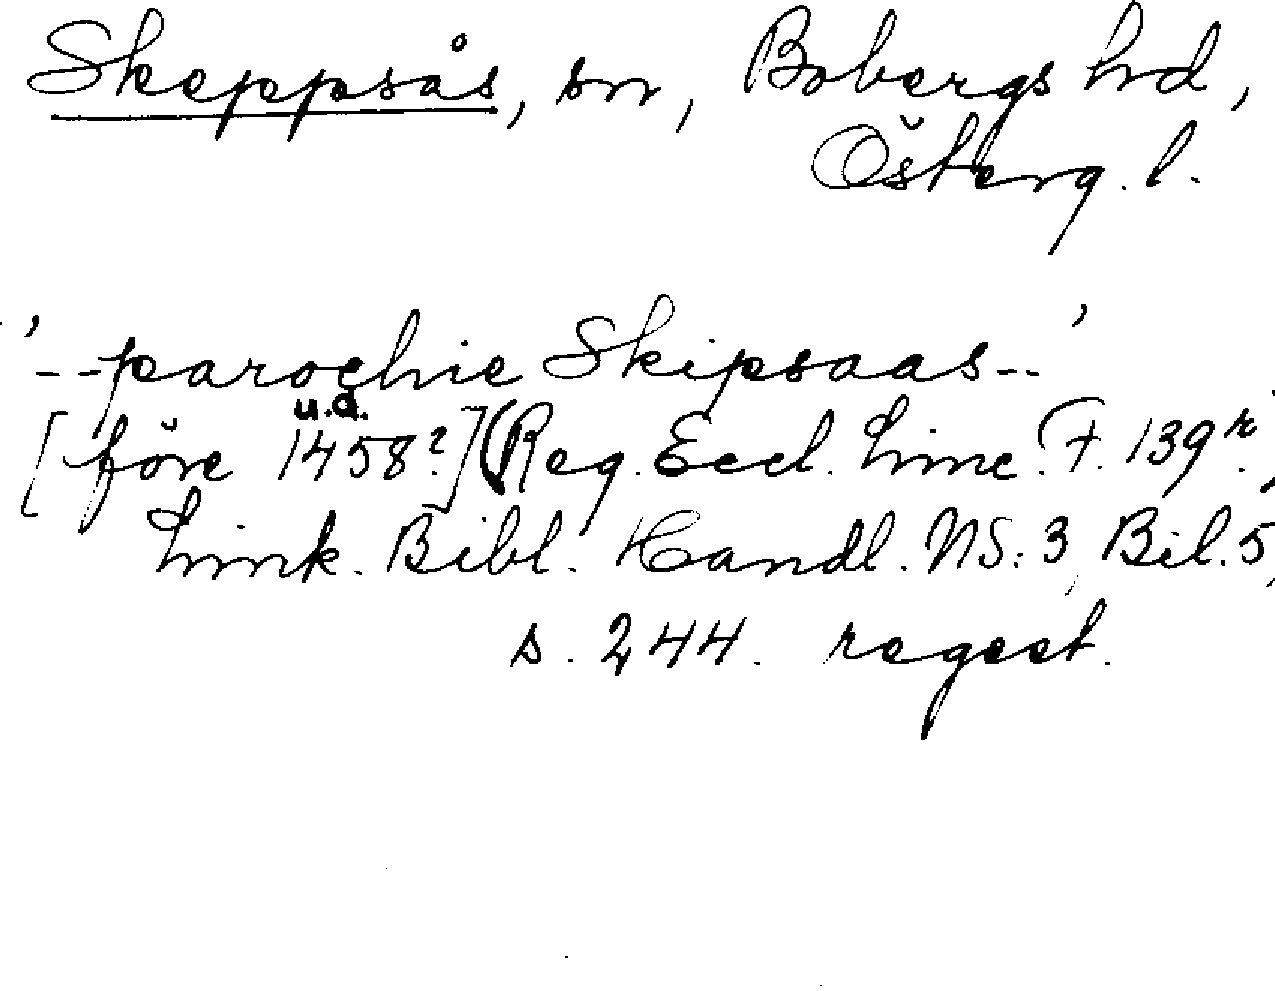 Skeppsås, sn, Bobergs hd,
Österg. l.
'--parochie Skipsaas--'
u.d.
[före 1458?] (Reg. Eccl. Linc. F. 139r.,
Link. Bibl. Handl. NS: 3, Bil. 5,
s. 244. regest.